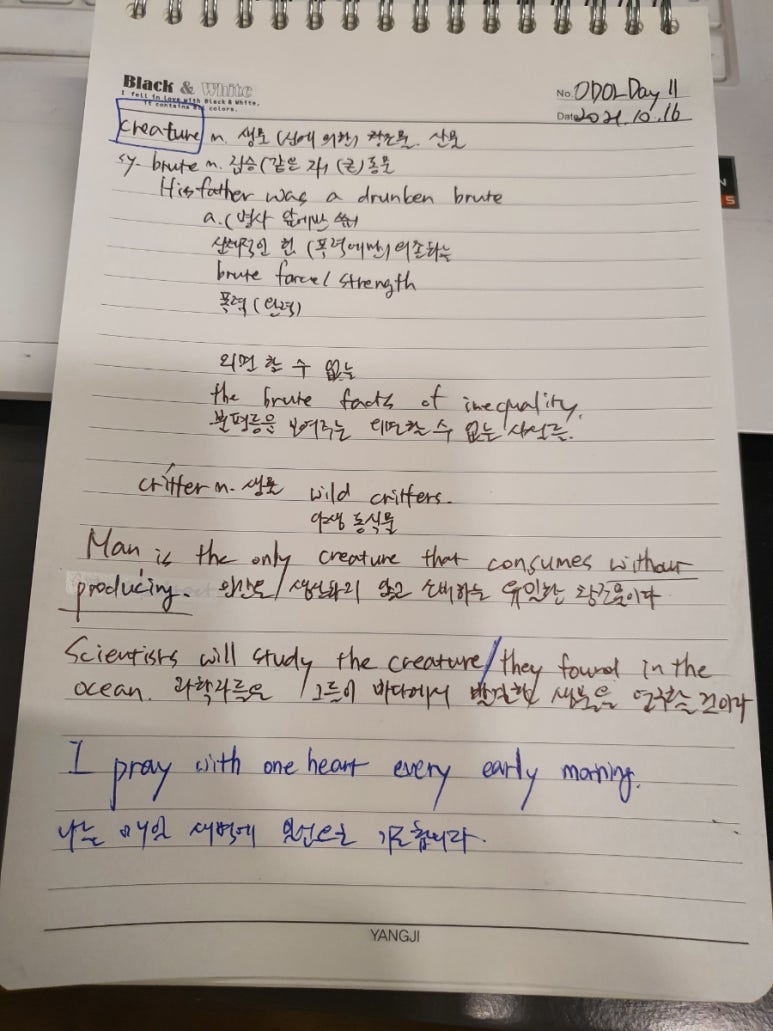 Black & White
I fell in love with Black & White.
It contains all colors.
No. ODOL Day 11
Date 2021.10.16
creature n. 생물 (신에 의한) 창조물. 산물
sy. brute n. 짐승(같은 자), (큰) 동물
His father was a drunken brute
a. (명사 앞에만 써서
신체적인 힘 (폭력에만) 의존하는
brute force/strength
폭력 (완력)
외면 할 수 없는
the brute facts of inequality.
불평등을 보여주는 외면할 수 없는 사실들.
critter n. 생물 wild critters.
야생 동식물
Man is the only creature that consumes without
producing. 인간은 / 생산하지 않고 소비하는 유일한 창조물이다
Scientists will study the creature / they found in the
ocean. 과학자들은 / 그들이 바다에서 발견한 생물을 연구하는 것이다
I pray with one heart every early morning.
나는 매일 새벽에 기도합니다.
YANGJI